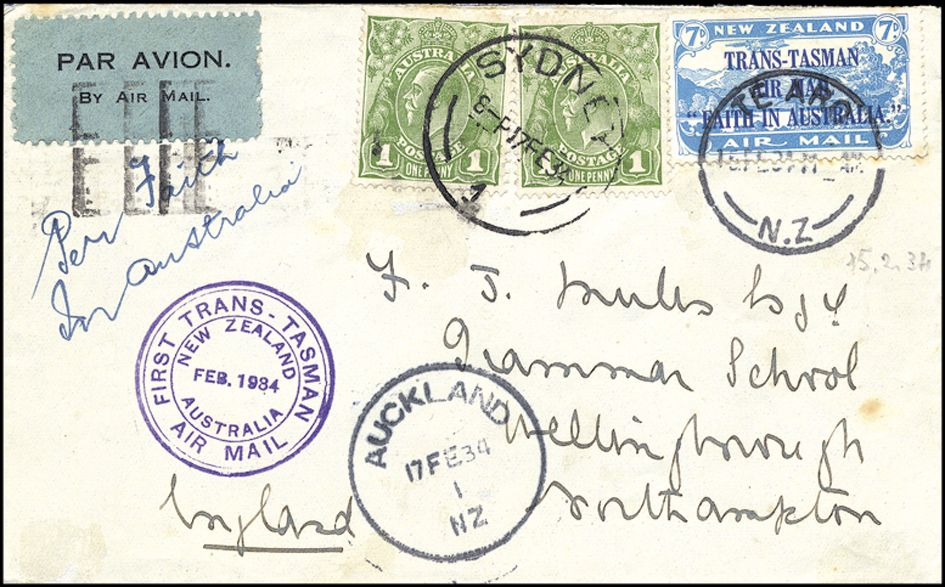 PAR AVION.
BY AIR MAIL.
AUSTRALIA
1 POSTAGE 1
ONE PENNY
AUSTRALIA
POSTAGE 1
ONE PENNY
SYDNEY
17FE34
7D NEW ZEALAND 7D
TRANS-TASMAN
AIR MAIL
"FAITH IN AUSTRALIA."
AIR MAIL
TE ARO
N.Z
15.2.34
Per Faith
In Australia
F. J. Esqr
Grammar School
Wellingborough
Northampton
England
FIRST TRANS-TASMAN
NEW ZEALAND
FEB. 1934
AUSTRALIA
AIR MAIL
AUCKLAND
17FE34
1
NZ